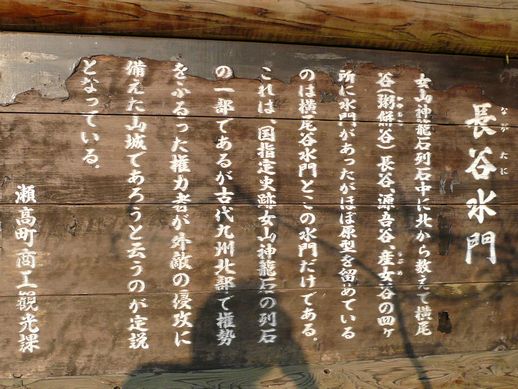 長谷水門
ながたに
女山神籠石列石中に北から数えて横尾
谷(粥餅谷)長谷、源吾谷、産女谷の四ヶ
所に水門があったがほぼ原型を留めている
のは横尾谷水門とこの水門だけである。
これは、国指定史跡女山神籠石の列石
の一部であるが古代九州北部で権勢
をふるった権力者が外敵の侵攻に
備えた山城であろうと云うのが定説
となっている。
瀬高町商工観光課